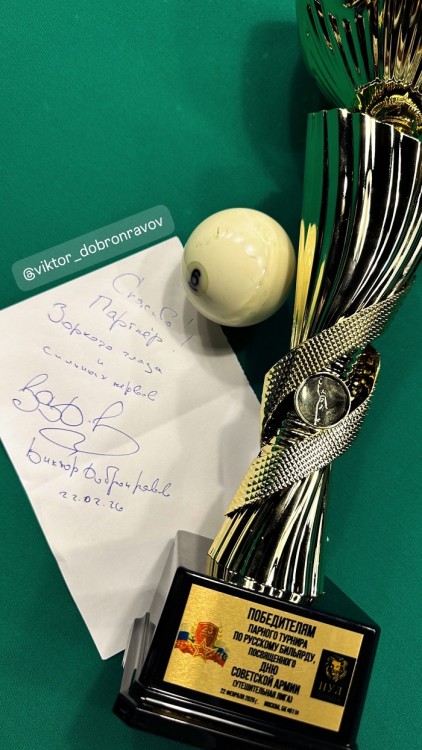 @viktor_dobronravov
Спасибо!
Партнёр!
Зоркого глаза
и
сильных нервов
Виктор Добронравов
22.02.26
6
ПОБЕДИТЕЛЯМ
ПАРНОГО ТУРНИРА
ПО РУССКОМУ БИЛЬЯРДУ,
ПОСВЯЩЕННОГО
ДНЮ
СОВЕТСКОЙ АРМИИ
(УТЕШИТЕЛЬНАЯ ЛИГА)
22 ФЕВРАЛЯ 2026 г. МОСКВА, БК
ПУЛ